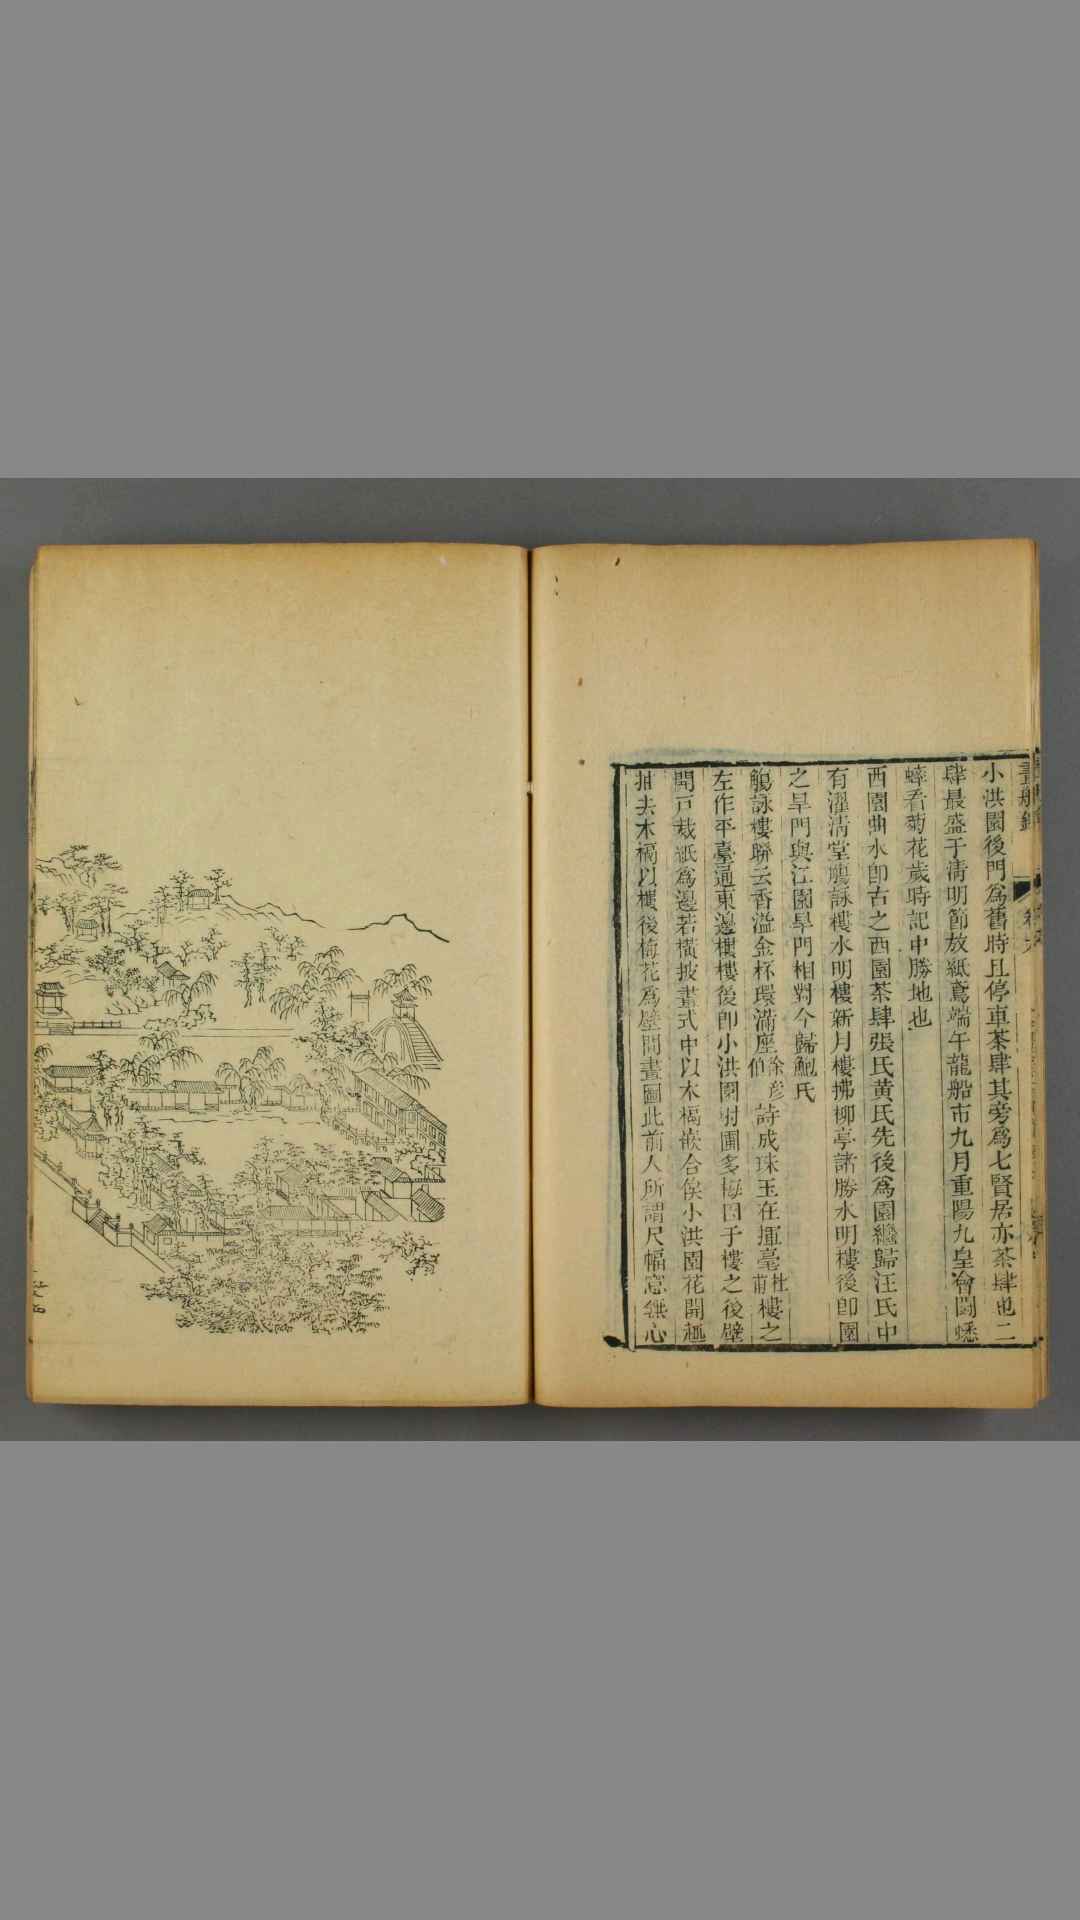 畫舫錄 卷六
小洪園後門爲舊時且停車茶肆其旁爲七賢居亦茶肆也二
肆最盛于淸明節放紙鳶端午龍船市九月重陽九皇會鬭蟋
蟀看菊花歲時記中勝地也
西園曲水卽古之西園茶肆張氏黃氏先後爲園繼歸汪氏中
有濯淸堂觴詠樓水明樓新月樓拂柳亭諸勝水明樓後卽園
之旱門與江園旱門相對今歸鮑氏
觴詠樓聯云香溢金杯環滿座徐彥伯詩成珠玉在揮毫杜甫樓之
左作平臺通東邊樓樓後卽小洪園射圃多梅因于樓之後壁
開戸裁紙爲邊若橫披畫式中以木槅嵌合俟小洪園花開趣
抽去木槅以樓後梅花爲壁間畫圖此前人所謂尺幅窓無心